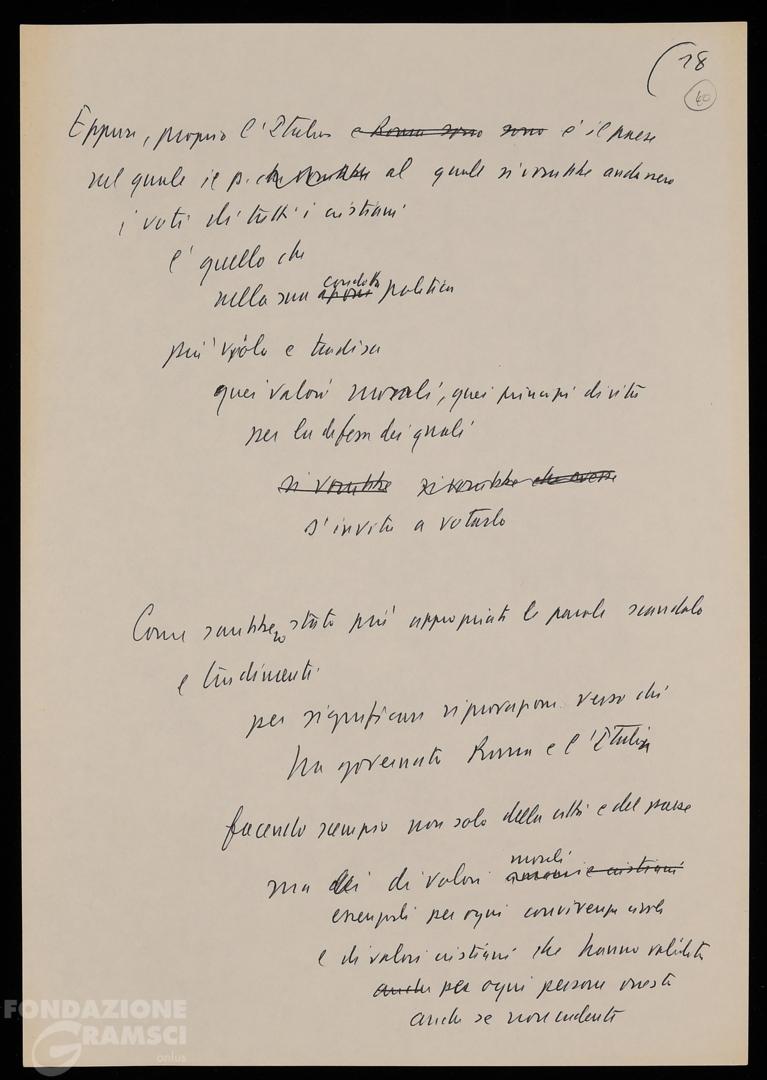 (18
40
Eppure, proprio l'Italia e Roma sono sono è il paese
nel quale il p. che vorrebbe al quale si vorrebbe andassero
i voti di tutti i cristiani
è quello che
condotta
nella sua politica
più viola e tradisce
quei valori morali, quei principi di vita
per la difesa dei quali
si vorrebbe si vorrebbe che avesse
s'invita a votarlo
Come sarebbero state più appropriate le parole scandalo
e tradimenti
per significare riprovazione verso chi
ha governato Roma e l'Italia
facendo scempio non solo della città e del paese
morali
ma di valori umani e cristiani
essenziali per ogni convivenza civile
e di valori cristiani che hanno validità
anche per ogni persona onesta
anche se non credente
FONDAZIONE
GRAMSCI
onlus